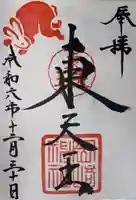 奉拝
東天王
令和六年十二月三十日